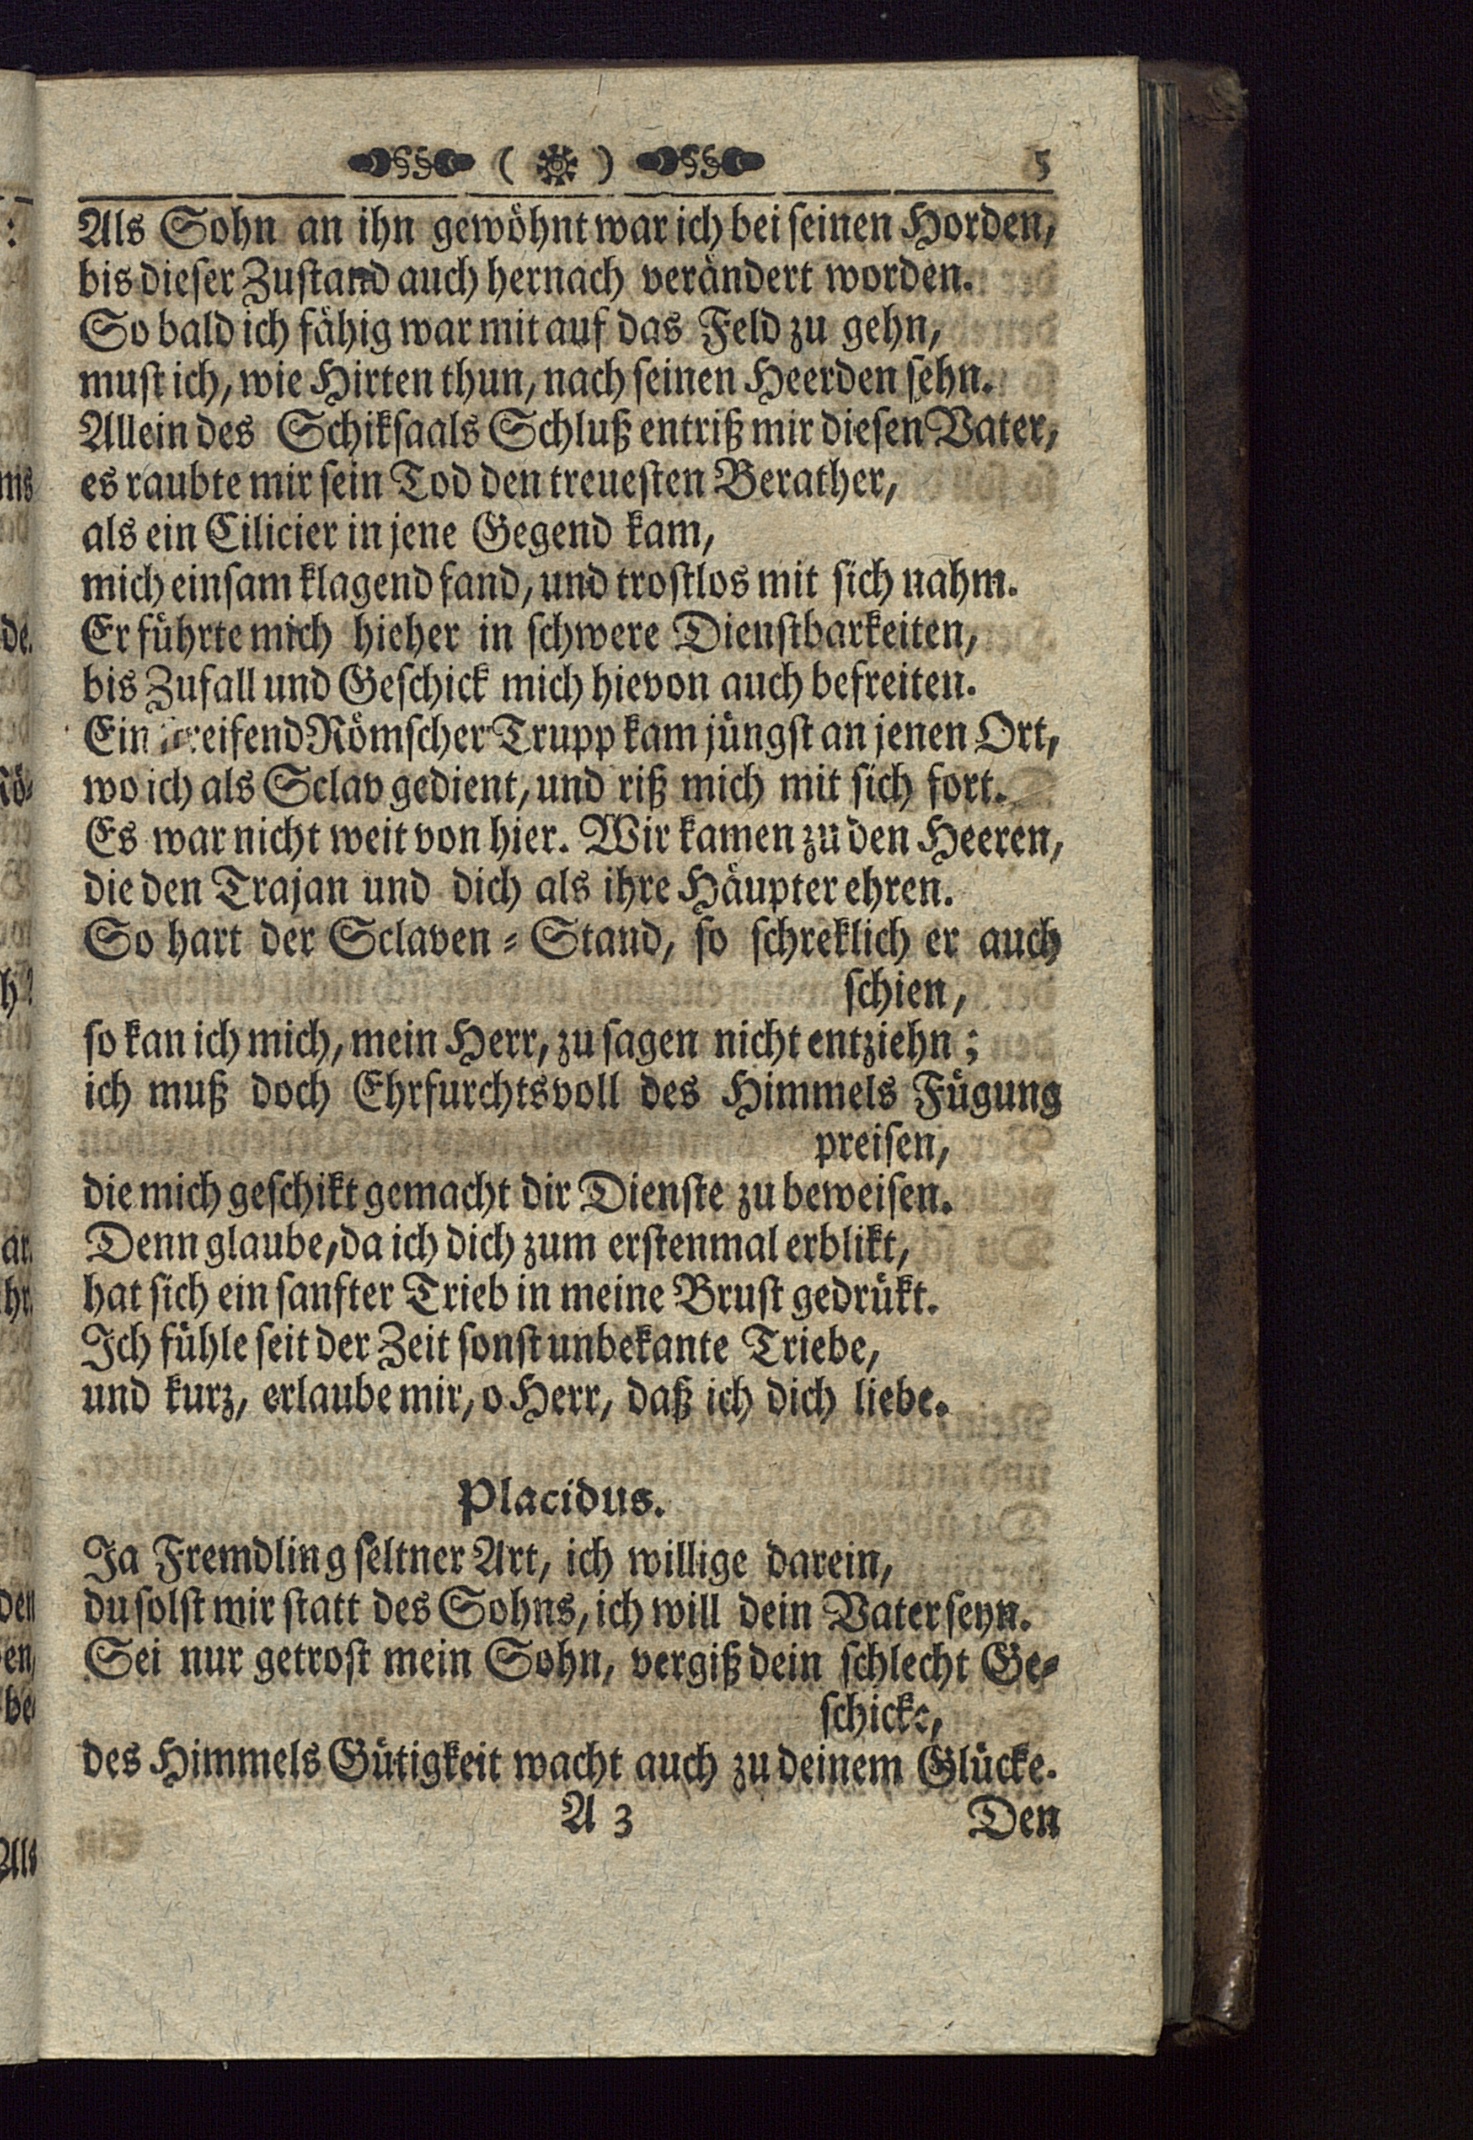 ( ) 5
Als Sohn an ihn gewöhnt war ich bei seinen Horden,
bis dieser Zustand auch hernach verändert worden.
So bald ich fähig war mit auf das Feld zu gehn,
must ich, wie Hirten thun, nach seinen Heerden sehn.
Allein des Schiksaals Schluß entriß mir diesen Vater,
es raubte mir sein Tod den treuesten Berather,
als ein Cilicier in jene Gegend kam,
mich einsam klagend fand, und trostlos mit sich nahm.
Er führte mich hieher in schwere Dienstbarkeiten,
bis Zufall und Geschick mich hievon auch befreiten.
Ein Römscher Trupp kam jüngst an jenen Ort,
wo ich als Sclav gedient, und riß mich mit sich fort.
Es war nicht weit von hier. Wir kamen zu den Heeren,
die den Trajan und dich als ihre Häupter ehren.
So hart der Sclaven-Stand, so schreklich er auch
schien,
so kan ich mich, mein Herr, zu sagen nicht entziehn;
ich muß doch Ehrfurchtsvoll des Himmels Fügung
preisen,
die mich geschikt gemacht dir Dienste zu beweisen.
Denn glaube, da ich dich zum erstenmal erblikt,
hat sich ein sanfter Trieb in meine Brust gedrükt.
Ich fühle seit der Zeit sonst unbekante Triebe,
und kurz, erlaube mir, o Herr, daß ich dich liebe.
Placidus.
Ja Fremdling seltner Art, ich willige darein,
du solst mir statt des Sohns, ich will dein Vater seyn.
Sei nur getrost mein Sohn, vergiß dein schlecht Ge-
schicke,
des Himmels Gütigkeit wacht auch zu deinem Glücke.
A 3 Den